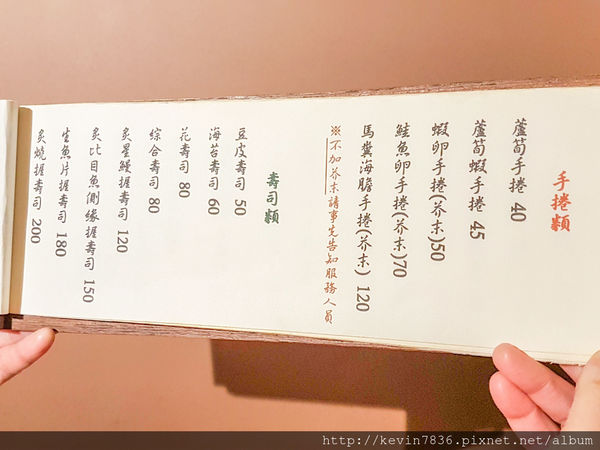 手捲類
蘆筍手捲 40
蘆筍蝦手捲 45
蝦卵手捲(芥末)50
鮭魚卵手捲(芥末)70
馬糞海膽手捲(芥末) 120
※不加芥末請事先告知服務人員
壽司類
豆皮壽司 50
海苔壽司 60
花壽司 80
綜合壽司 80
炙星鰻握壽司 120
炙比目魚側緣握壽司 150
生魚片握壽司 180
炙燒握壽司 200
http://kevin7836.pixnet.net/album